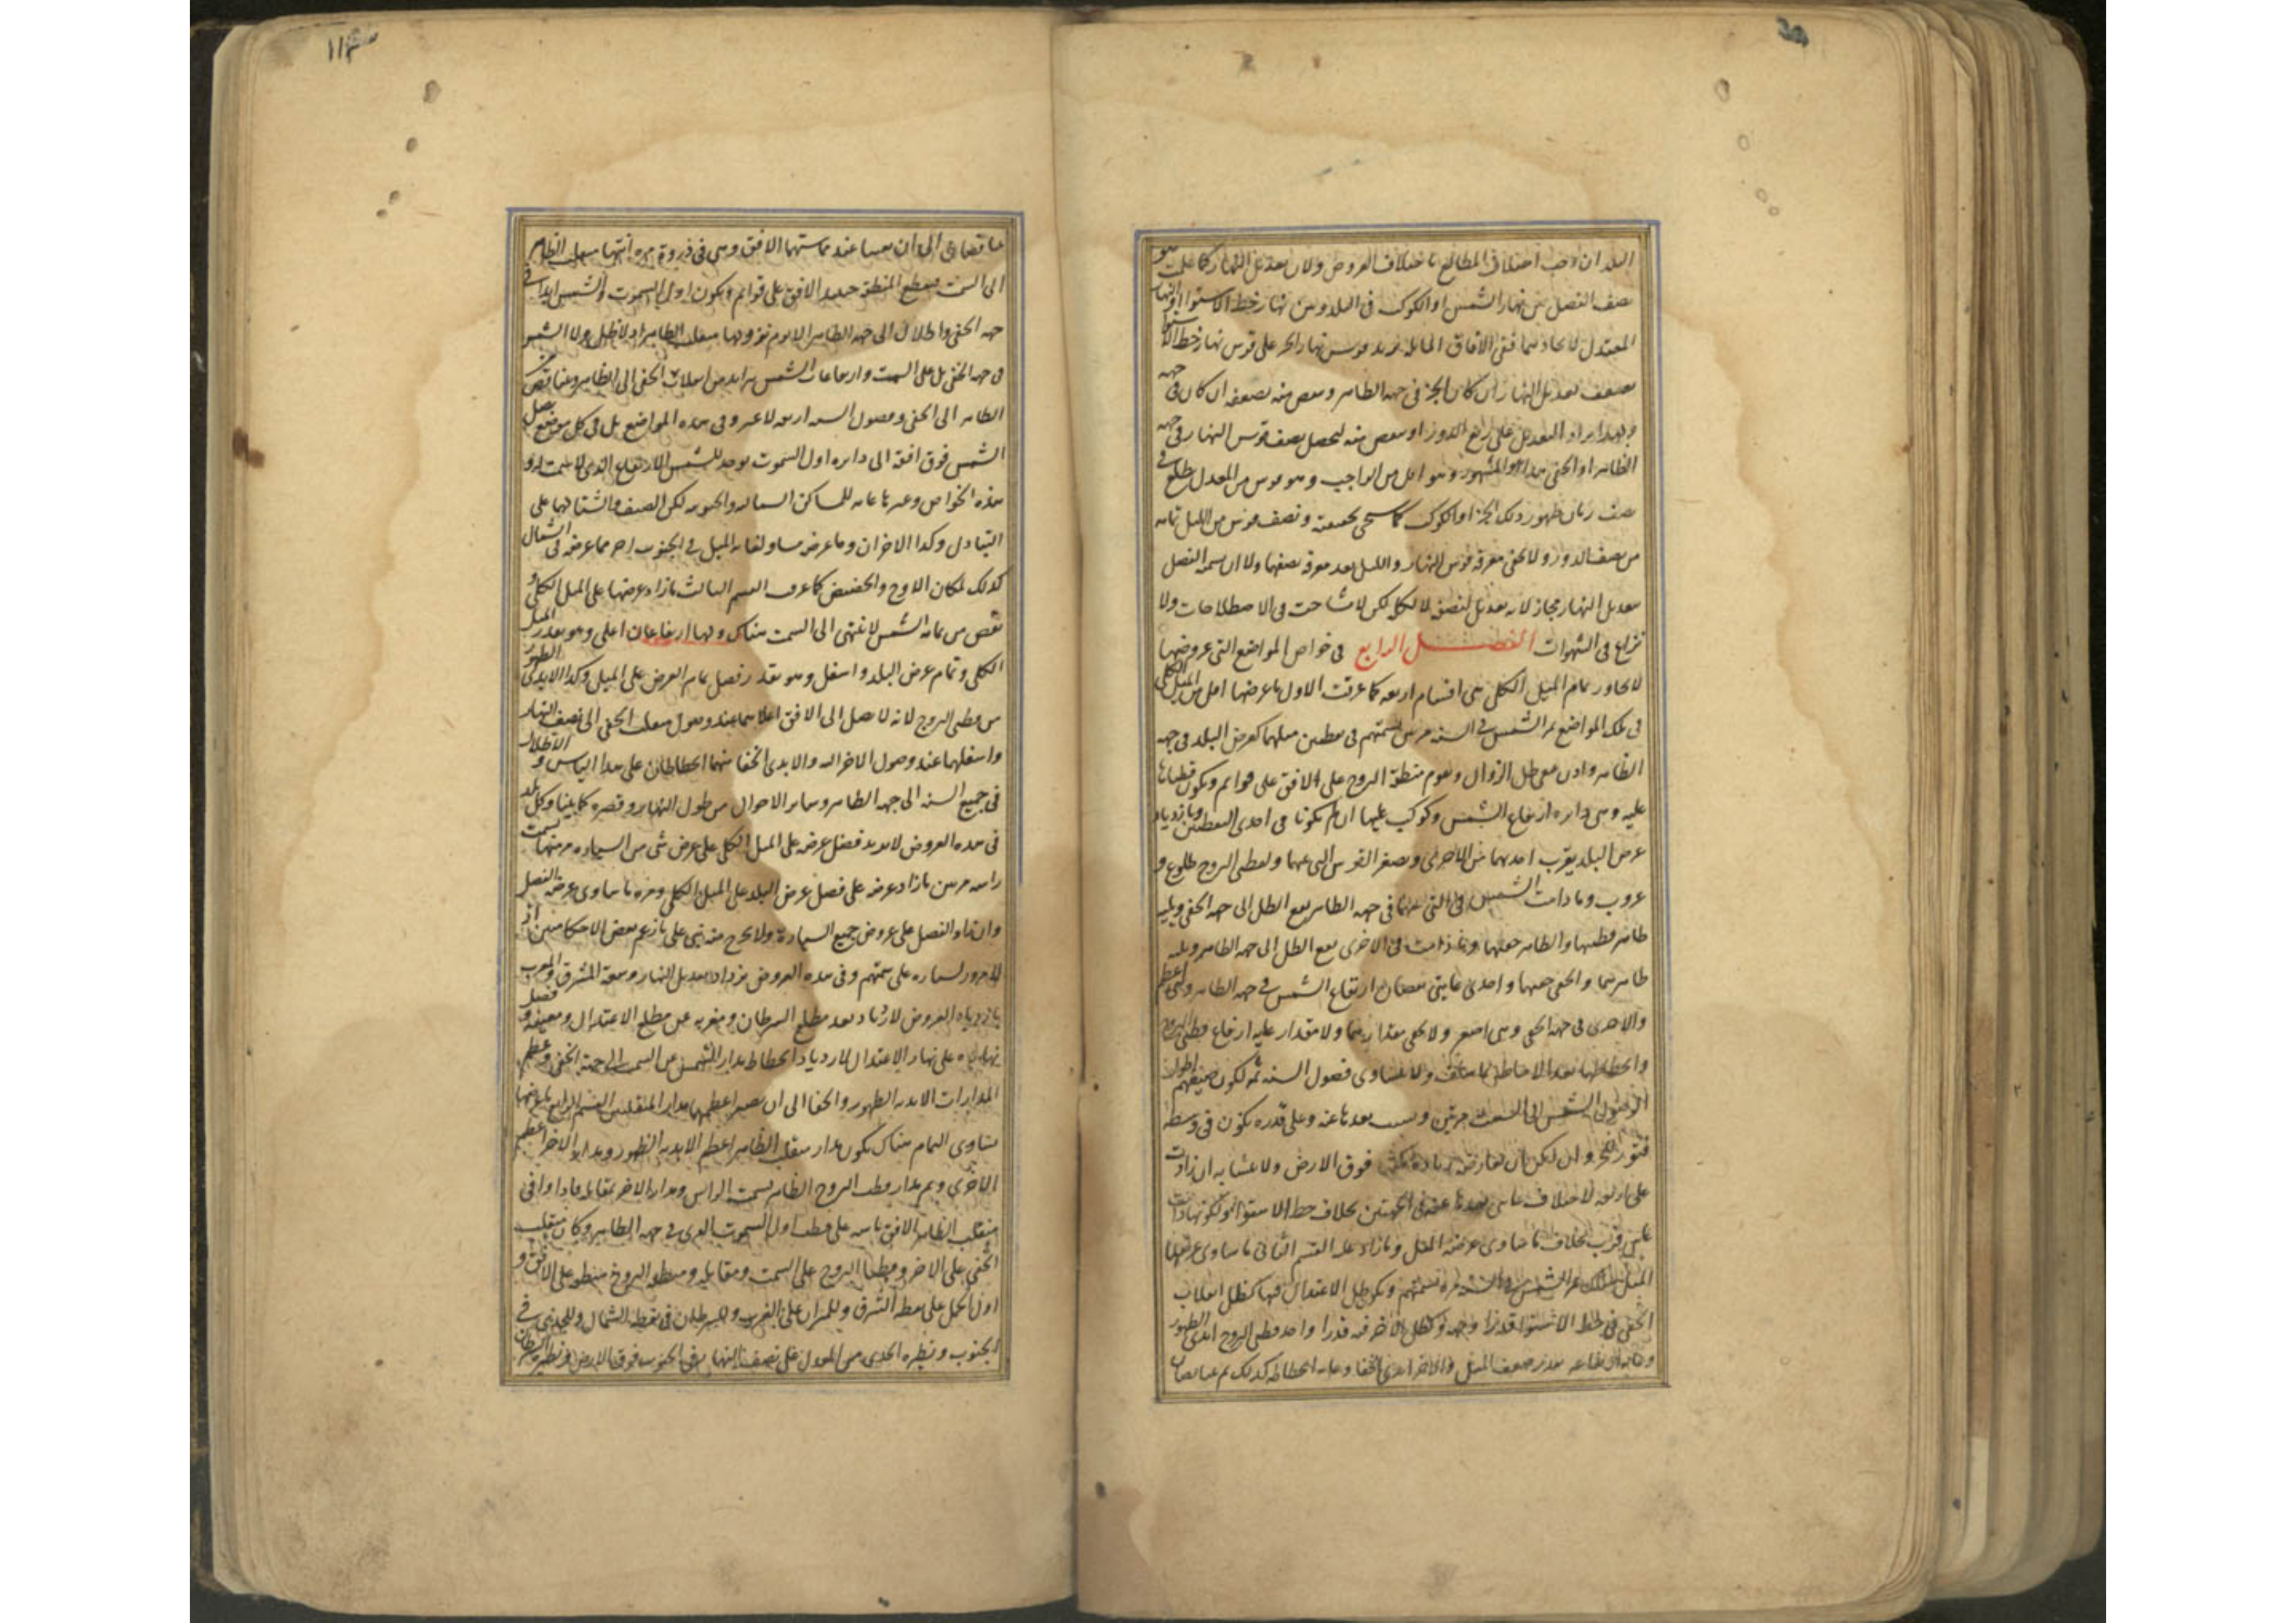 البلدان وجب اختلاف المطالع باختلاف العروض ولان تعديل النهار كما علمت هو
نصف الفصل بين نهار الشمس او الكوكب فى البلد وبين نهار خط الاستوا او النهار
المعتدل لاتحادهما ففى الافاق المايله يزيد قوس نهار الجز على قوس نهار خط الاستوا
بضعف تعديل النهار ان كان الجز فى جهه الظاهر وينقص منه بضعفه ان كان فى جهه
التعديل على ربع الدور او ينقص منه ليحصل نصف قوس النهار فى جهه
الظاهر او الخفى هذا هو المشهور وهو اقل من الواجب وهو قوس من المعدل يطلع فى
نصف زمان ظهور ذلك الجز او الكوكب كما سيجى تحقيقه ونصف قوس الليل تمامه
من نصف الدور ولا يخفى معرفه قوس النهار والليل بعد معرفه نصفهما ولا ان تسميه الفضل
بتعديل النهار مجاز لانه تعديل لنصفه لا لكله لكن لا مشاحه فى الاصطلاحات ولا
نزاع فى الشهوات الفصل الرابع فى خواص المواضع التى عروضها
لا تجاوز تمام الميل الكلى هى اقسام اربعه كما عرفت الاول ما عرضها اقل من الميل الكلى
فى تلك المواضع تمر الشمس فى السنه مرتين بسمتهم فى نقطتين ميلهما كعرض البلد فى جهه
الظاهر وادن مع ظل الزوال وتقوم منطقه البروج على الافق على قوائم ويكون قطباها
عليه وهى دايره ارتفاع الشمس وكوكب عليها ان لم تكونا فى احدى النقطتين وبازدياد
عرض البلد يقرب احديهما من الاخرى ويصغر القوس التى بينهما ولقطبى البروج طلوع و
غروب وما دامت الشمس فى التى بينهما فى جهه الظاهر يقع الظل الى جهه الخفى ويليه
ظاهر قطبيها والظاهر خفيها وما دامت فى الاخرى يقع الظل الى جهه الظاهر ويليه
ظاهرهما والخفى خفيها واحدى غايتى نقصان ارتفاع الشمس فى جهه الظاهر وهى اعظم
والاخرى فى جهه الخفى وهى اصغر ولا يخفى مقدارهما ولا مقدار غايه ارتفاع قطبى البروج
وانحطاطهما بعد الاحاطه بما سلف ولا تتساوى فصول السنه ثمه لكون صيفهم اطول
لوصول الشمس الى السمت مرتين وبسبب بعدها عنه وعلى قدره يكون فى وسطه
فتور الحر وان امكن ان يعارضه زياده مكث فوق الارض ولا متشابه ان زادت
على اربعه لاختلاف غايتى بعدها عنه فى الجهتين بخلاف خط الاستوا
بخلاف ما تساوى عرضه الميل وما زاد عليه القسم الثانى ما تساوى عرضها
الميل هناك تمر الشمس فى السنه مره بسمتهم ويكون ظل الاعتدال فيها كظل انقلاب
الخفى فى خط الاستوا قدرا وجهه وكظل الاخر فيه قدرا واحد قطبى البروج ابدى الظهور
وغايه ارتفاعه بقدر ضعف الميل والاخر ابدى الخفا وغايه انحطاطه كذلك ثم يتناقصان
١١٣
متناقضا الى ان ينعدما عند مماستهما الافق وهى فى ذروه مره انتهاء منقلب الظاهر
الى السمت فيقطع المنطقه حينئذ الافق على قوائم ويكون اول السموت والشمس ابدا فى
جهه الخفى والظلال الى جهه الظاهر الا يوم نزولها منقلب الظاهر اذ لا ظل ولا الشمس
فى جهه الخفى بل على السمت وارتفاعات الشمس تتزايد من انقلاب الخفى الى الظاهر ويتناقص من
الظاهر الى الخفى وفصول السنه اربعه لا غير وفى هذه المواضع بل فى كل موضع يصل
الشمس فوق افقه الى دايره اول السموت يوجد للشمس الارتفاع الذى لا سمت له و
هذه الخواص وغيرها عامه للمساكن الشماليه والجنوبيه لكن الصيف والشتا فيها على
التبادل وكذا الاخران وما عرضه مساو لغايه الميل فى الجنوب احر مما عرضه فى الشمال
كذلك لمكان الاوج والحضيض كما عرف القسم الثالث ما زاد عرضها على الميل الكلى و
نقص من تمامه الشمس لا تنتهى الى السمت هناك ولها ارتفاعان اعلى وهو بقدر الميل
الكلى وتمام عرض البلد واسفل وهو بقدر فضل تمام العرض على الميل وكذا الابدى الظهور
من قطبى البروج لانه لا يصل الى الافق اعلاهما عند وصول منقلب الخفى الى نصف النهار
واسفلهما عند وصول الاخر اليه والابدى الخفا منهما انحطاطان على هذا القياس والاظلال
فى جميع السنه الى جهه الظاهر وسائر الاحوال من طول النهار وقصره كما بينا وكل بلد
فى هذه العروض لا يزيد فضل عرضه على الميل الكلى على عرض شى من السياره مر بسمت
راسه مرتين ما زاد عرضه على فضل عرض البلد على الميل الكلى ومره ما ساوى عرضه الفضل
وان زاد الفضل على عروض جميع السياره ولا يخرج منه شى على ما زعم بعض الاحكاميين اذ
لا مرور لسياره على سمتهم وفى هذه العروض تزداد تعديل النهار وسعه المشرق والمغرب
بازدياد العروض لازدياد بعد مطلع السرطان ومغربه عن مطلع الاعتدال ومغيبه وفضل
نهاره على نهار الاعتدال لازدياد انحطاط مدار الشمس عن السمت الى جهه الخفى وعظم
المدارات الابديه الظهور والخفا الى ان يصير اعظمها مدار المنقلبين القسم الرابع ما عرضها
يساوى التمام هناك يكون مدار منقلب الظاهر اعظم الابديه الظهور ومدار الاخر اعظم
الاخرى ويمر مدار قطب البروج الظاهر بسمت الراس ومدار الاخر بمقابله فاذا وافى
منقلب الظاهر الافق ماسه على قطب اول السموت الذى فى جهه الظاهر وكان منقلب
الخفى على الاخر وقطبا البروج على السمت ومقابله ومنطقه البروج منطبقه على الافق و
اول الحمل على نقطه المشرق والميزان على المغرب والسرطان فى نقطه الشمال والجدى فى
الجنوب ونظيره الجدى من المعدل على نصف النهار فى الجنوب فوق الارض ونظيره السرطان